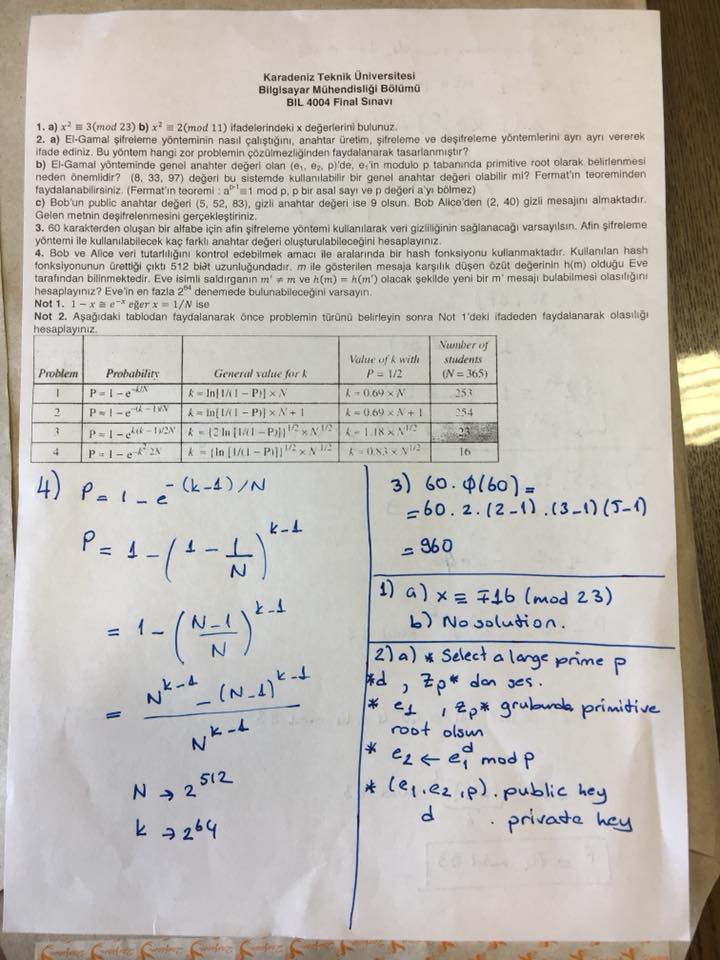 Karadeniz Teknik Üniversitesi
Bilgisayar Mühendisliği Bölümü
BIL 4004 Final Sınavı
1. a) x² ≡ 3(mod 23) b) x² ≡ 2(mod 11) ifadelerindeki x değerlerini bulunuz.
2. a) El-Gamal şifreleme yönteminin nasıl çalıştığını, anahtar üretim, şifreleme ve deşifreleme yöntemlerini ayrı ayrı vererek
ifade ediniz. Bu yöntem hangi zor problemin çözülmezliğinden faydalanarak tasarlanmıştır?
b) El-Gamal yönteminde genel anahtar değeri olan (e₁, e₂, p)'de, e₁'in modulo p tabanında primitive root olarak belirlenmesi
neden önemlidir? (8, 33, 97) değeri bu sistemde kullanılabilir bir genel anahtar değeri olabilir mi? Fermat'ın teoreminden
faydalanabilirsiniz. (Fermat'ın teoremi : aᵖ⁻¹≡1 mod p, p bir asal sayı ve p değeri a'yı bölmez)
c) Bob'un public anahtar değeri (5, 52, 83), gizli anahtar değeri ise 9 olsun. Bob Alice'den (2, 40) gizli mesajını almaktadır.
Gelen metnin deşifrelenmesini gerçekleştiriniz.
3. 60 karakterden oluşan bir alfabe için afin şifreleme yöntemi kullanılarak veri gizliliğinin sağlanacağı varsayılsın. Afin şifreleme
yöntemi ile kullanılabilecek kaç farklı anahtar değeri oluşturulabileceğini hesaplayınız.
4. Bob ve Alice veri tutarlılığını kontrol edebilmek amacı ile aralarında bir hash fonksiyonu kullanmaktadır. Kullanılan hash
fonksiyonunun ürettiği çıktı 512 bitlet uzunluğundadır. m ile gösterilen mesaja karşılık düşen özüt değerinin h(m) olduğu Eve
tarafından bilinmektedir. Eve isimli saldırganın m′ ≠ m ve h(m) = h(m′) olacak şekilde yeni bir m' mesajı bulabilmesi olasılığını
hesaplayınız? Eve'in en fazla 2⁶⁴ denemede bulunabileceğini varsayın.
Not 1. 1 − x ≅ e⁻ˣ eğer x = 1/N ise
Not 2. Aşağıdaki tablodan faydalanarak önce problemin türünü belirleyin sonra Not 1'deki ifadeden faydalanarak olasılığı
hesaplayınız.
Problem Probability General value for k Value of k with P = 1/2 Number of students (N = 365)
1 P ≈ 1 − e^−k/N k ≈ ln[1/(1 − P)] × N k ≈ 0.69 × N 253
2 P ≈ 1 − e^−(k − 1)/N k ≈ ln[1/(1 − P)] × N + 1 k ≈ 0.69 × N + 1 254
3 P ≈ 1 − e^k(k − 1)/2N k ≈ {2 ln [1/(1 − P)]}^1/2 × N^1/2 k ≈ 1.18 × N^1/2 23
4 P ≈ 1 − e^−k² 2N k ≈ {ln [1/(1 − P)]}^1/2 × N^1/2 k ≈ 0.83 × N^1/2 16
4) P = 1 − e^−(k−1)/N
P = 1 − (1 − 1/N)^k−1
= 1 − (N−1/N)^k−1
= N^k−1 − (N−1)^k−1 / N^k−1
N → 2^512
k → 2^64
3) 60 . φ(60) =
= 60 . 2 . (2−1) . (3−1) (5−1)
= 960
1) a) x ≡ ∓16 (mod 23)
b) No solution.
2) a) * Select a large prime p
*d , Zp* dan seç.
* e₁ , Zp* grubunda primitive
root olsun
* e₂ ← e₁^d mod p
* (e₁, e₂, p) . public key
d . private key